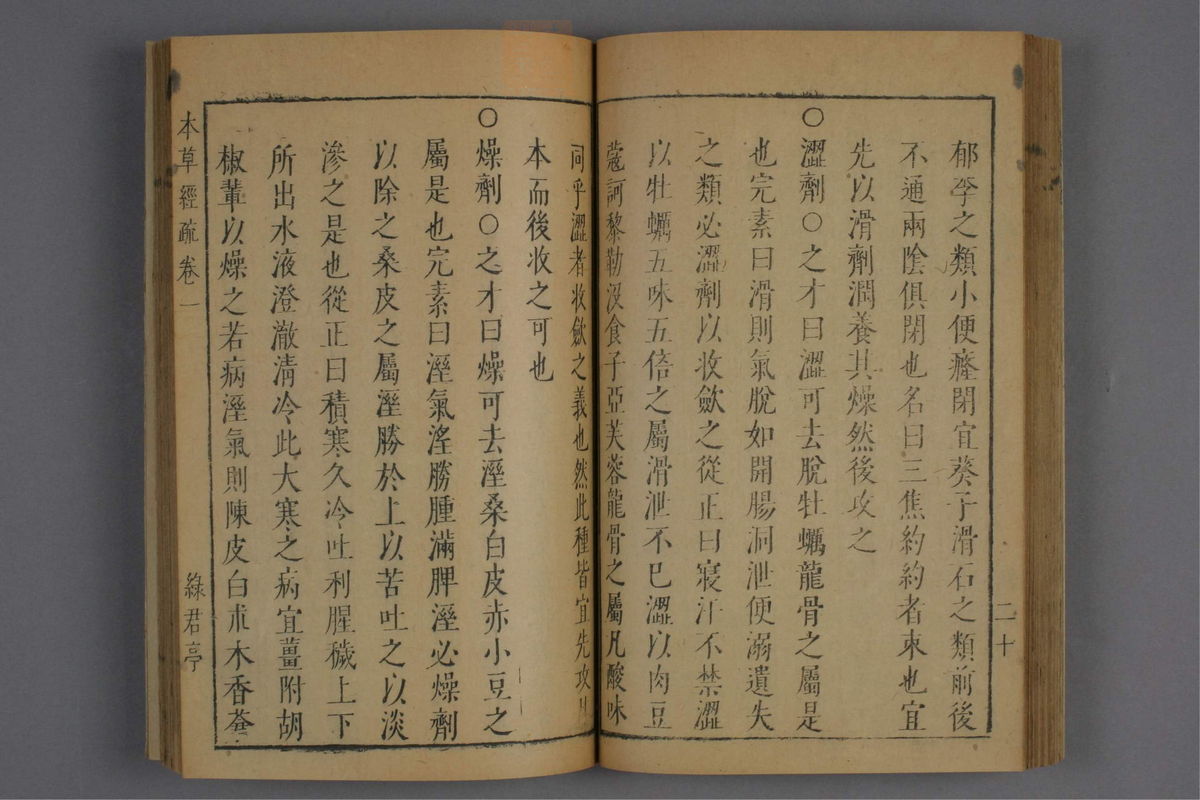 郁李之類小便癃閉宜葵子滑石之類前後
不通兩陰俱閉也名曰三焦約約者束也宜
先以滑劑潤養其燥然後攻之
○澀劑○之才曰澀可去脫牡蠣龍骨之屬是
也完素曰滑則氣脫如開腸洞泄便溺遺失
之類必澀劑以收斂之從正曰寢汗不禁澀
以牡蠣五味五倍之屬滑泄不已澀以肉豆
蔻訶黎勒沒食子亞芙蓉龍骨之屬凡酸味
同乎澀者收斂之義也然此種皆宜先攻其
本而後收之可也
○燥劑○之才曰燥可去溼桑白皮赤小豆之
屬是也完素曰溼氣淫勝腫滿脾溼必燥劑
以除之桑皮之屬溼勝於上以苦吐之以淡
滲之是也從正曰積寒久冷吐利腥穢上下
所出水液澄澈清冷此大寒之病宜薑附胡
椒輩以燥之若病溼氣則陳皮白朮木香蒼
二十
本草經疏卷一
綠君亭